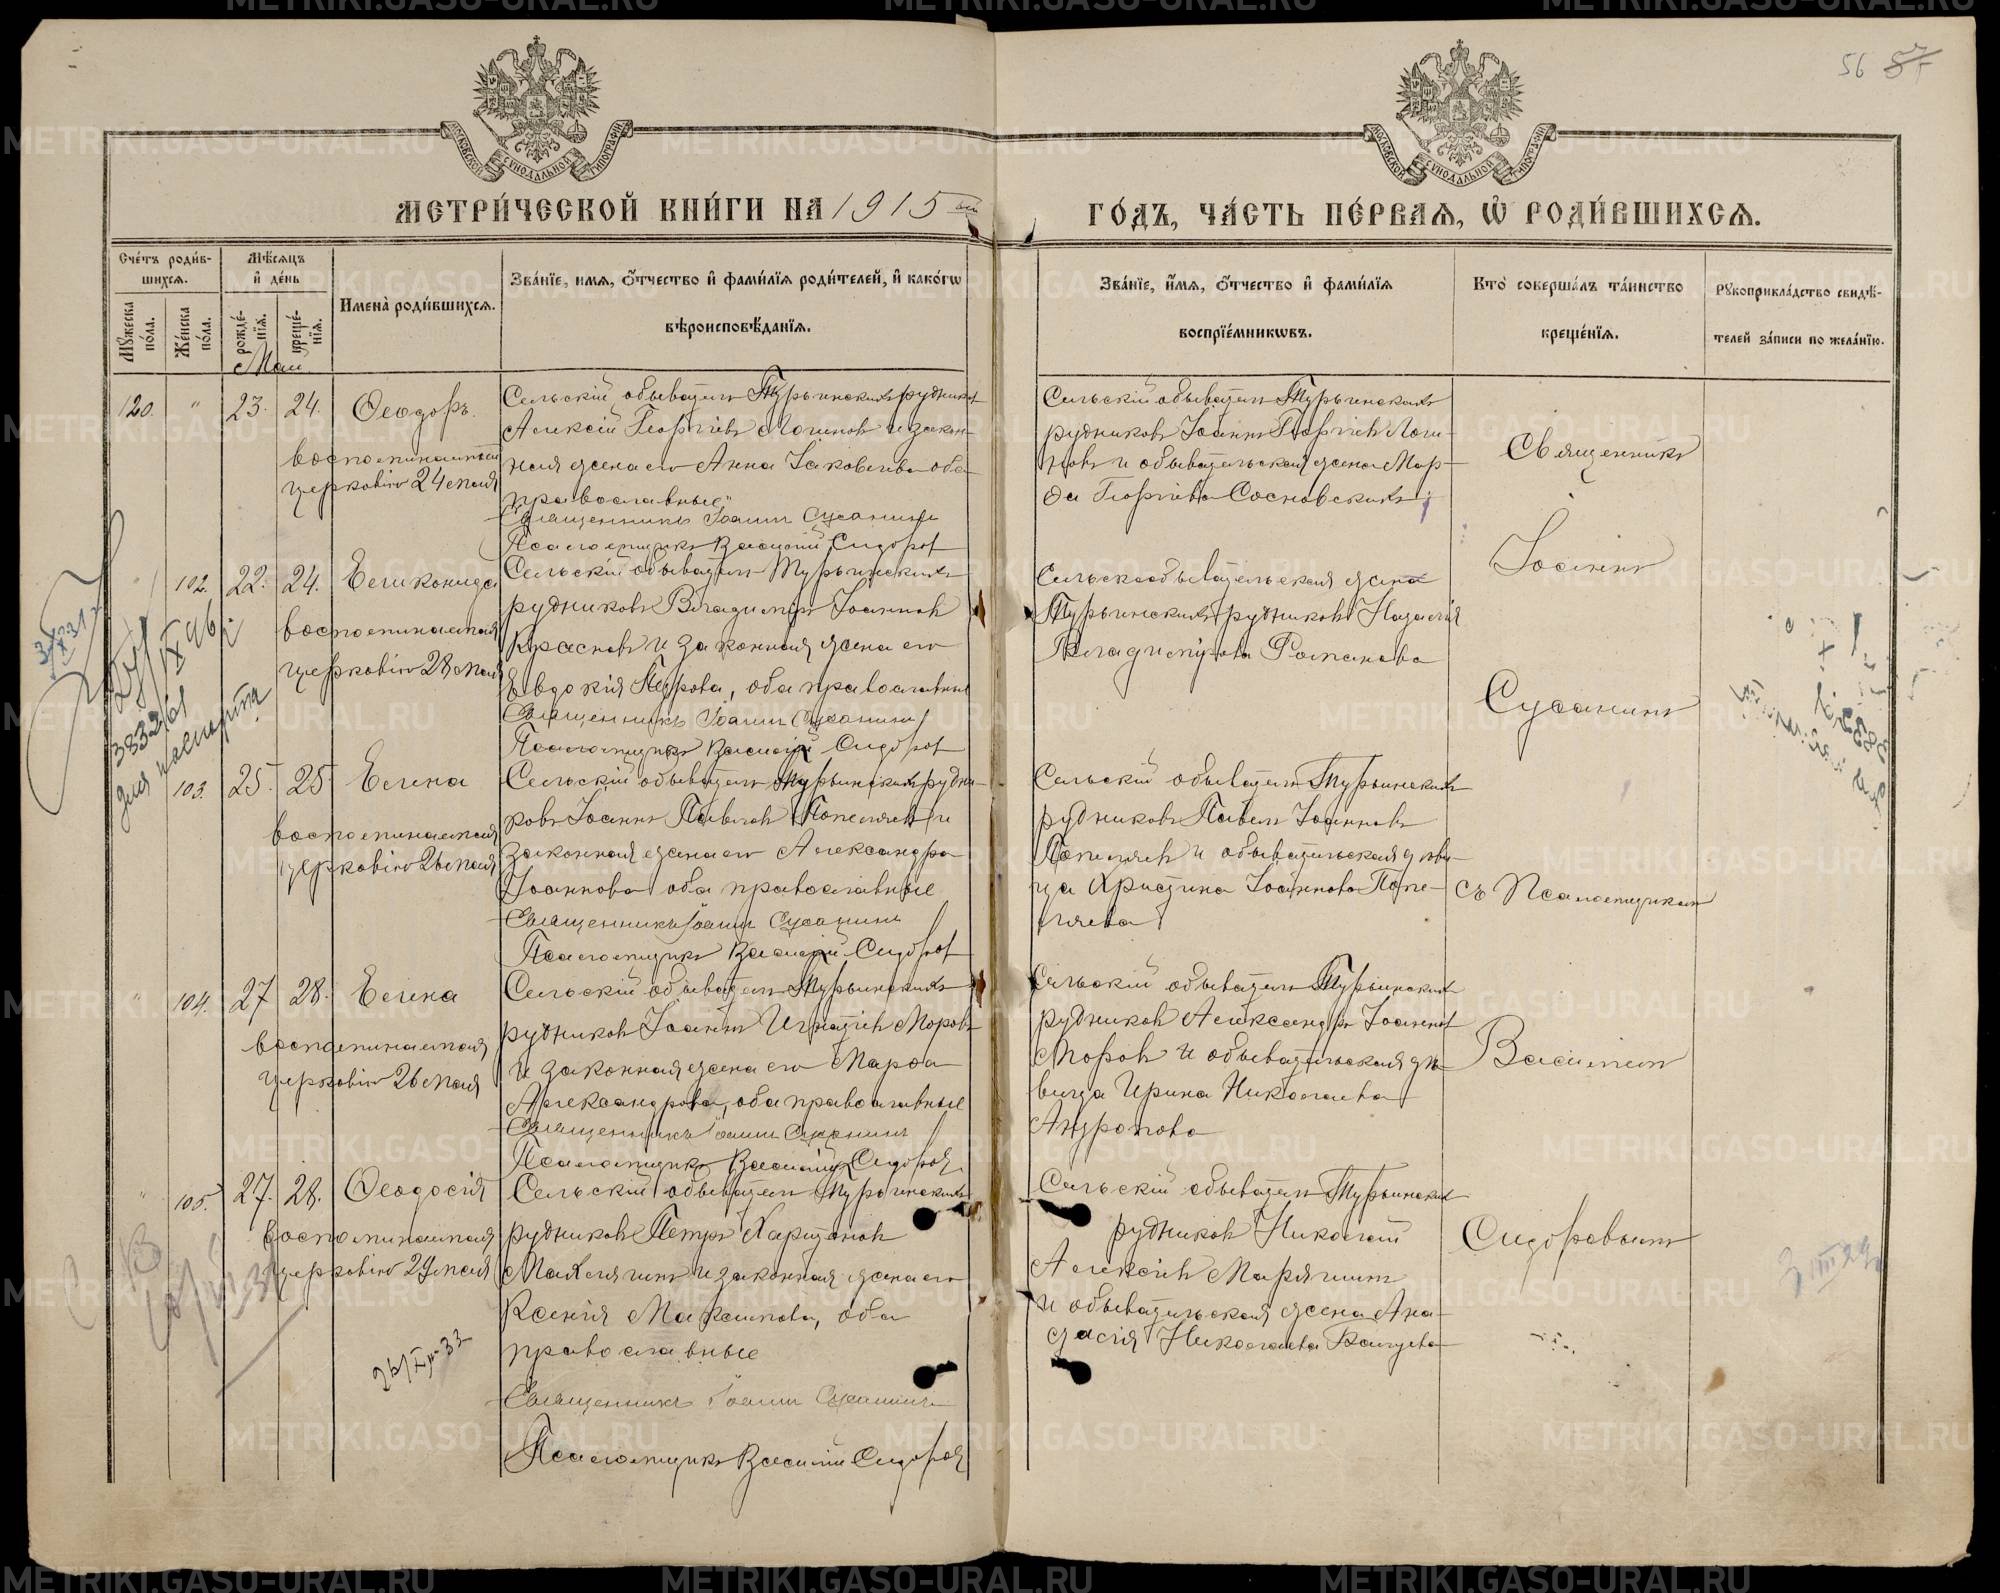 56 87
МОСКОВСКОЙ СѴНОДАЛЬНОЙ ТИПОГРАФІИ
МОСКОВСКОЙ СѴНОДАЛЬНОЙ ТИПОГРАФІИ
МЕТРИ́ЧЕСКОЙ КНИ́ГИ НА 1915 ый
ГО́ДЪ, ЧА́СТЬ ПЕ́РВАѦ, Ѡ҆ РОДИ́ВШИХСѦ.
Сче́тъ роди́в-
шихсѧ.
Мꙋ́жеска по́ла.
Же́нска по́ла.
Мѣ́сѧцъ и҆ де́нь
рожде́-нїѧ.
креще́-нїѧ.
Имена̀ роди́вшихсѧ.
Зва́нїе, имѧ, ѻ҆́тчество и҆ фами́лїѧ роди́телей, и҆ како́гѡ
вѣроисповѣ́данїѧ.
Зва́нїе, и҆́мѧ, ѻ҆́тчество и҆ фами́лїѧ
воспрїе́мникѡвъ.
Кто̀ соверша́лъ та́инство
креще́нїѧ.
Рꙋкоприкла́дство свидѣ́-
телей за́писи по жела́нїю.
Май
120. " 23. 24. Ѳеодоръ.
воспоминаемый
церковію 24 мая
Сельскій обыватель Турьинскихъ рудников
Алексій Георгіевъ Логиновъ и закон-
ная жена его Анна Іаковлева оба
православные
Священникъ Іоаннъ Сусанинъ
Псаломщикъ Василій Сидоров
Сельскій обыватель Турьинскихъ
рудниковъ Іоаннъ Георгіев Логи-
новъ и обывательская жена Мар-
ѳа Георгіева Сосновскихъ
102. 22. 24. Еликонида
воспоминаемая
церковію 28 мая
Сельскій обыватель Турьинскихъ
рудниковъ Владиміръ Іоаннов
Красновъ и законная жена его
Евдокія Петрова, оба православные
Священникъ Іоаннъ Сусанинъ
Псаломщикъ Василій Сидоров
Сельскообывательская жена
Турьинскихъ рудниковъ Наталія
Владимірова Романова
103. 25. 25 Елена
воспоминаемая
церковію 26 мая
Сельскій обыватель Турьинскихъ рудни-
ковъ Іоаннъ Павлов Попеляев и
законная жена его Александра
Іоаннова оба православные
Священникъ Іоаннъ Сусанинъ
Псаломщикъ Василій Сидоров
Сельскій обыватель Турьинскихъ
рудниковъ Павелъ Іоанновъ
Попеляев и обывательская дѣви-
ца Христина Іоаннова Попе-
ляева
" 104. 27 28. Елена
воспоминаемая
церковію 26 мая
Сельскій обыватель Турьинскихъ
рудников Іоаннъ Игнатіев Моров
и законная жена его Марѳа
Александрова, оба православные
Священникъ Іоаннъ Сусанинъ
Псаломщикъ Василій Сидоров
Сельскій обыватель Турьинскихъ
рудников Александръ Іоаннов
Моров и обывательская дѣ-
вица Ирина Николаева
Андропова
" 105. 27. 28. Ѳеодосія
воспоминаемая
церковію 29 мая
Сельскій обыватель Турьинскихъ
рудников Петръ Харитонов
и законная жена его
Ксенія Максимова, оба
православные
Священникъ Іоаннъ Сусанинъ
Псаломщикъ Василій Сидоров
Сельскій обыватель Турьинских
рудников Николай
Алексіев
и обывательская жена Ана-
стасія Николаева
Священникъ
Іоаннъ
Сусанинъ
съ Псаломщиком
Василіем
Сидоровымъ
для паспорта
METRIKI.GASO-URAL.RU